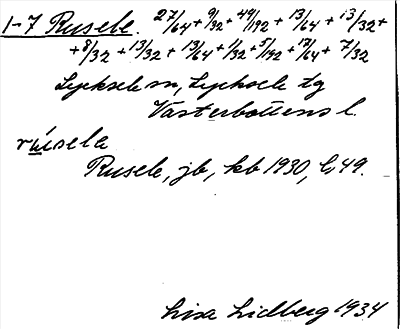 1-7 Rusele. 27/64 + 9/32 + 49/192 + 13/64 + 13/32 +
+ 8/32 + 13/32 + 13/64 + 1/32 + 5/192 + 13/64 + 7/32
Lycksele sn, Lycksele tg
Västerbottens l.
rúsela
Rusele, jb, kb 1930, L, 49.
Lisa Lidberg 1934